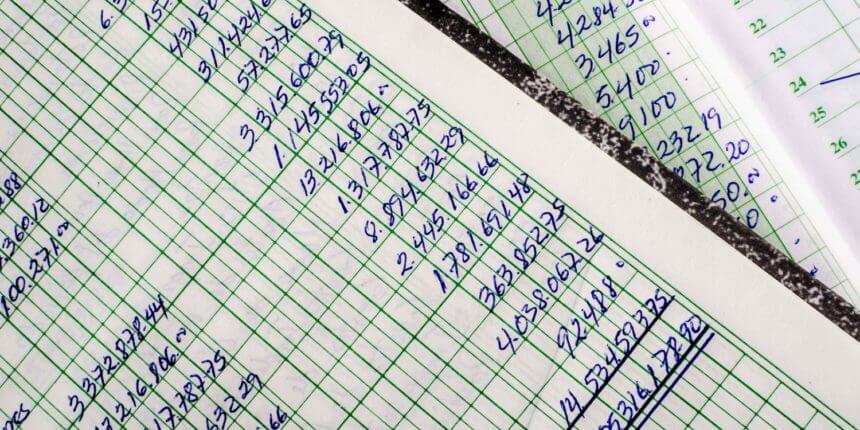 311.424.6
57.277.65
3.315.600.79
1.145.553.05
13.216.806.00
1.317.787.75
8.894.632.29
2.445.166.66
1.781.691.48
363.852.75
4.038.067.26
92.488.0
14.534.593.75
05316.178.90
.360.12
100.271.00
3372.878.44
.216.806.00
17.787.75
632.29
.66
4284.00
3465.00
5.400.
9100
23219
972.20
50.00
0
23
24
25
26